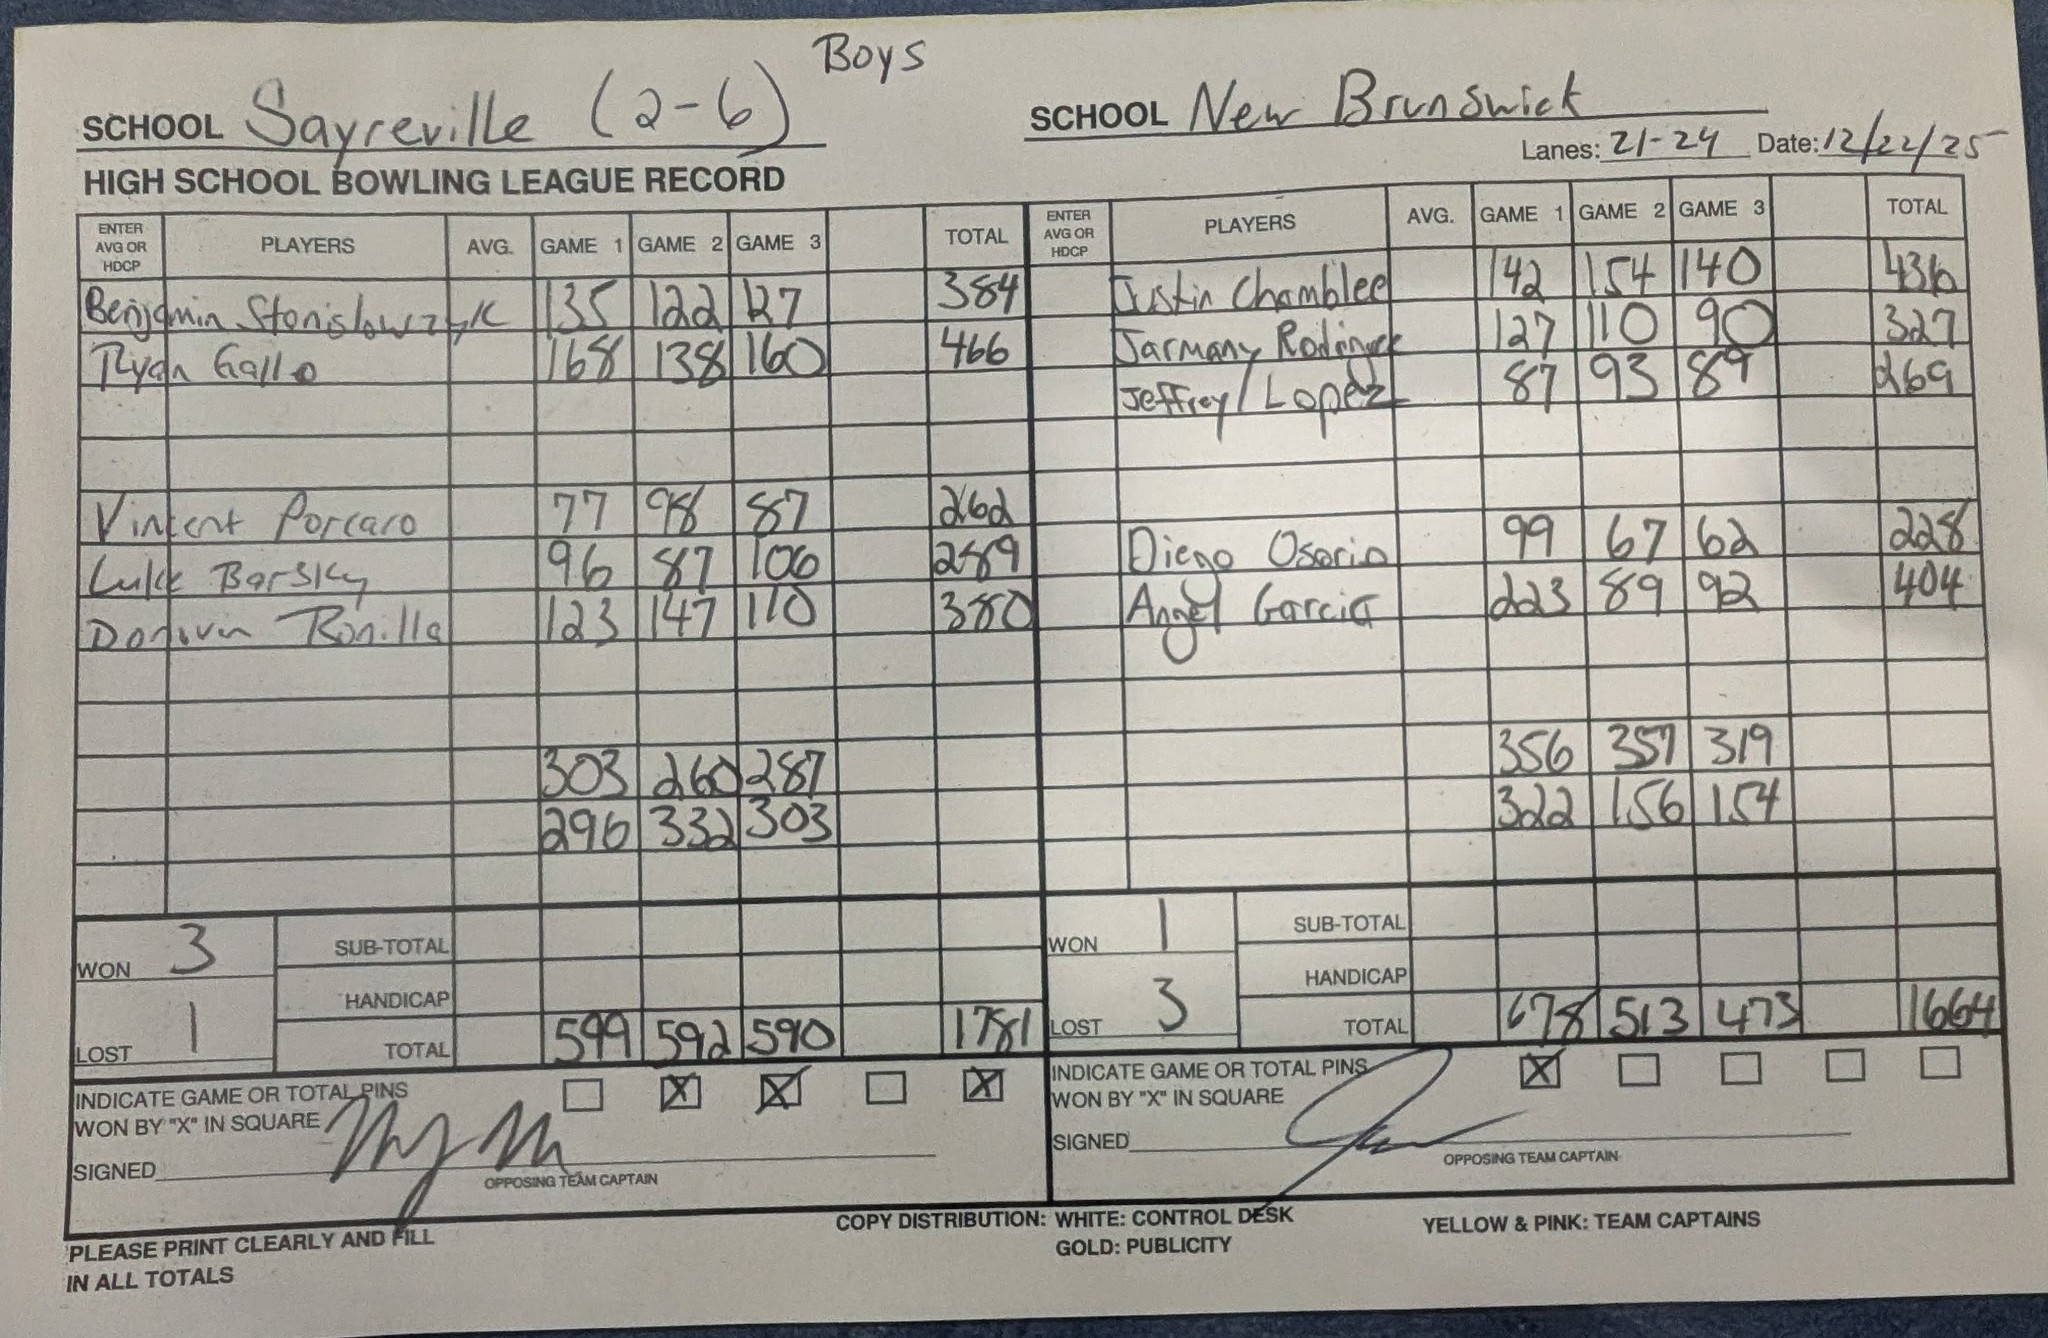 Boys
SCHOOL Sayreville (2-6)
SCHOOL New Brunswick
Lanes: 21-24 Date: 12/22/25
HIGH SCHOOL BOWLING LEAGUE RECORD
ENTER AVG OR HDCP PLAYERS AVG. GAME 1 GAME 2 GAME 3 TOTAL ENTER AVG OR HDCP PLAYERS AVG. GAME 1 GAME 2 GAME 3 TOTAL
Benjamin Stanislowzyk 135 122 127 384 Justin Chamblee 142 154 140 436
Ryan Gallo 168 138 160 466 Jarmany 127 110 90 327
Jeffrey Lopez 87 93 89 269
Vincent Porcaro 77 98 87 262
Diego Osorio 99 67 62 228
Luke Barsky 96 87 106 289
Angel Garcia 223 89 92 404
Donovin Bonilla 123 147 110 380
303 260 287 356 357 319
296 332 303 322 156 154
WON 3 SUB-TOTAL WON 1 SUB-TOTAL
HANDICAP HANDICAP
LOST 1 TOTAL 599 592 590 1781 LOST 3 TOTAL 678 513 473 1664
INDICATE GAME OR TOTAL PINS X X X INDICATE GAME OR TOTAL PINS X
WON BY "X" IN SQUARE WON BY "X" IN SQUARE
SIGNED SIGNED
OPPOSING TEAM CAPTAIN OPPOSING TEAM CAPTAIN
PLEASE PRINT CLEARLY AND FILL
IN ALL TOTALS
COPY DISTRIBUTION: WHITE: CONTROL DESK YELLOW & PINK: TEAM CAPTAINS
GOLD: PUBLICITY